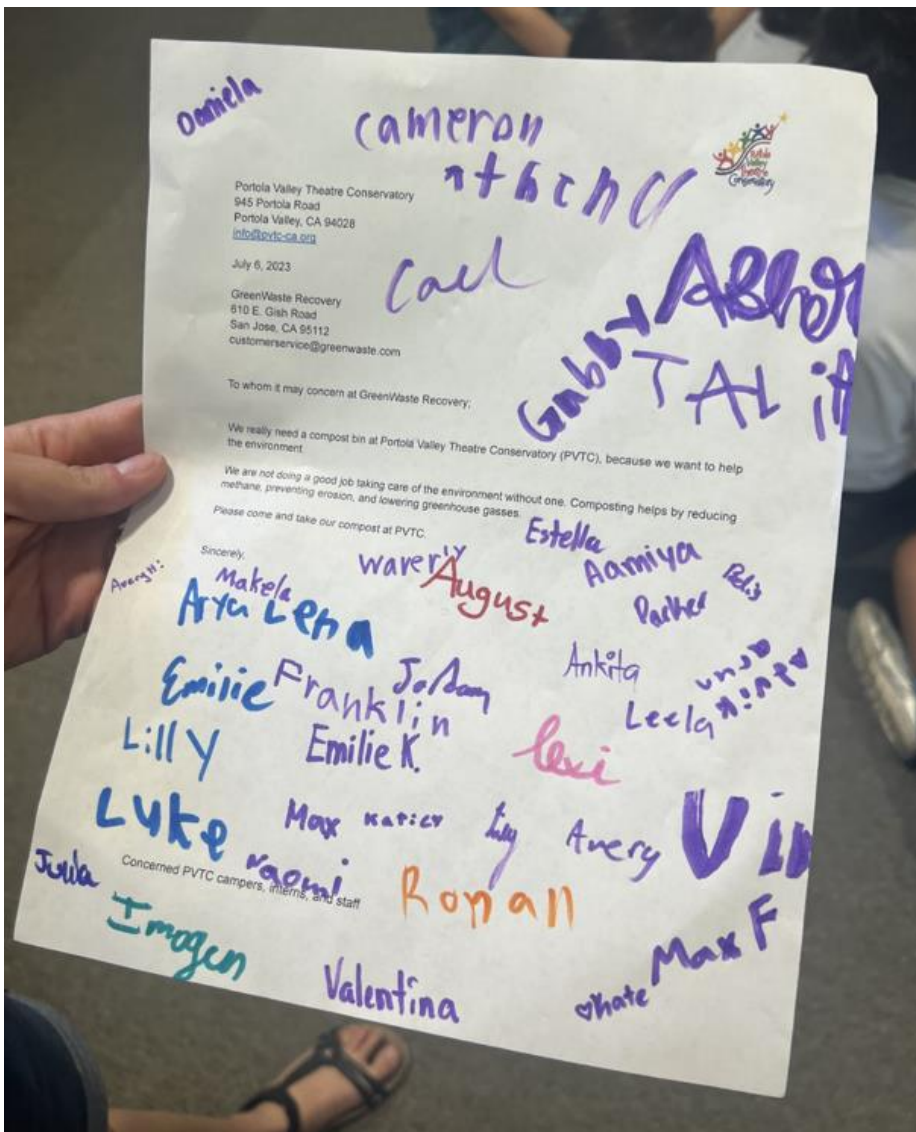 Daniela
cameron
Portola
Valley
Theatre
Conservatory
Portola Valley Theatre Conservatory
945 Portola Road
Portola Valley, CA 94028
info@pvtc-ca.org
July 6, 2023
Cael
GreenWaste Recovery
610 E. Gish Road
San Jose, CA 95112
customerservice@greenwaste.com
Gabby
TAL
To whom it may concern at GreenWaste Recovery;
We really need a compost bin at Portola Valley Theatre Conservatory (PVTC), because we want to help
the environment.
We are not doing a good job taking care of the environment without one. Composting helps by reducing
methane, preventing erosion, and lowering greenhouse gasses.
Please come and take our compost at PVTC.
Estella
Sincerely,
Waverly
August
Aamiya
Avery H.
Makela
Parker
Arya
Lena
Ankita
Emilie
Franklin
Leela
Lilly
Emilie K.
lexi
Luke
Max
Lily
Avery
Concerned PVTC campers, interns, and staff
Naomi
Ronan
Imogen
Max F
Valentina